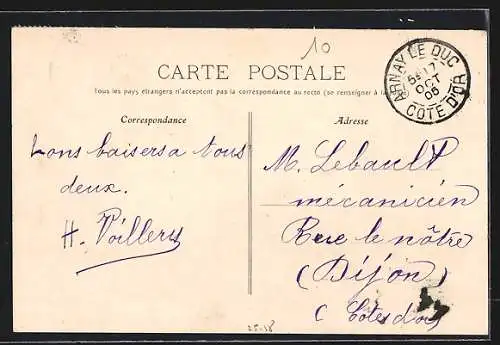 10
ARNAY LE DUC
17
OCT
06
COTE D'OR
CARTE POSTALE
Tous les pays étrangers n'acceptent pas la correspondance au recto (se renseigner à la
Correspondance
Adresse
bons baisers a tous
deux.
H. Poillery
M. Lebault
mécanicien
Rue le nôtre
(Dijon)
(Côtes d'or)
25-18